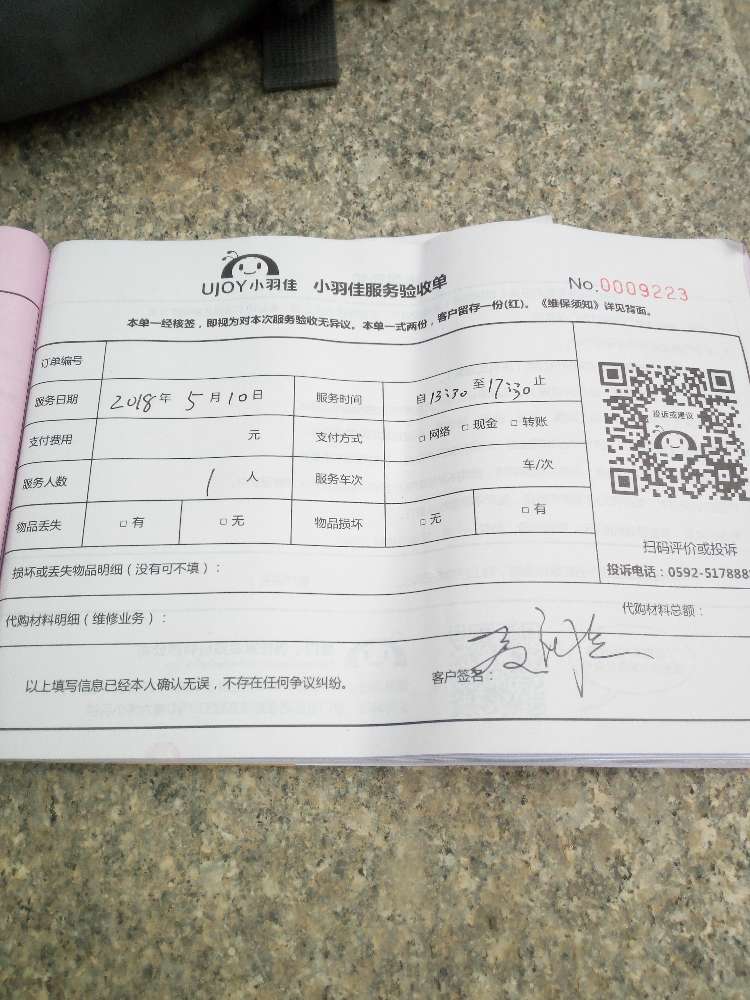 UJOY小羽佳 小羽佳服务验收单 No.0009223
本单一经核签，即视为对本次服务验收无异议。本单一式两份，客户留存一份(红)。《维保须知》详见背面。
订单编号
服务日期 2018年 5月10日 服务时间 自13:30至17:30止
支付费用 元 支付方式 □网络 □现金 □转账
服务人数 1人 服务车次 车/次
物品丢失 □有 □无 物品损坏 □无 □有
投诉或建议
扫码评价或投诉
投诉电话：0592-5178888
损坏或丢失物品明细（没有可不填）：
代购材料明细（维修业务）： 代购材料总额：
以上填写信息已经本人确认无误，不存在任何争议纠纷。 客户签名：